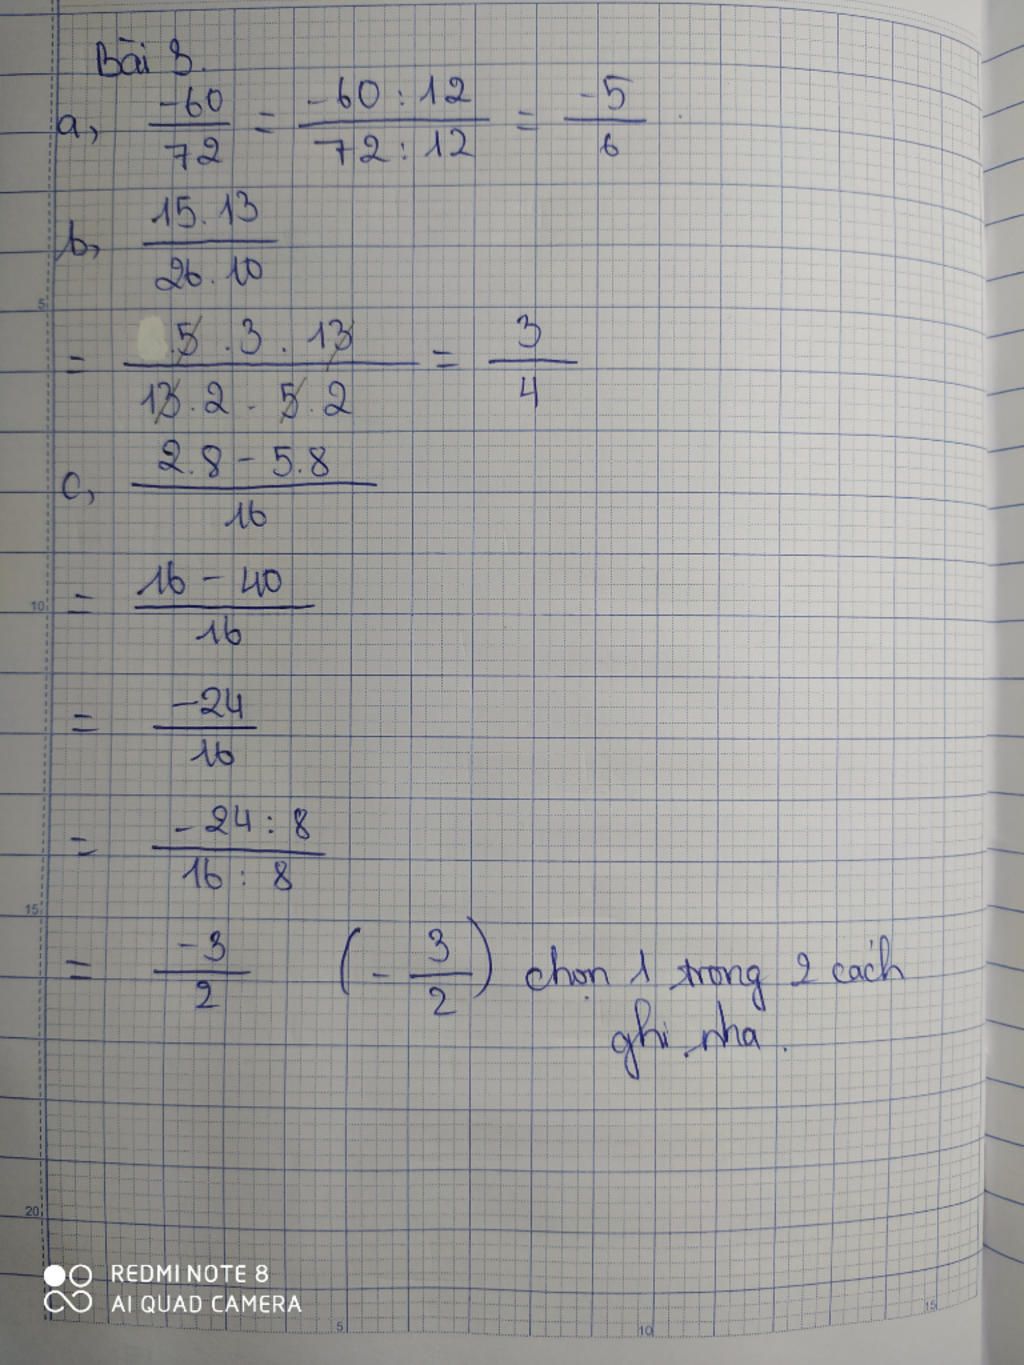 Bài 3.
a, -60/72 = -60 : 12/72 : 12 = -5/6
b, 15.13/26.10
= 5 . 3 . 13/13 . 2 . 5 . 2 = 3/4
c, 2.8 - 5.8/16
= 16 - 40/16
= -24/16
= -24 : 8/16 : 8
= -3/2 (- 3/2) chọn 1 trong 2 cách
ghi nha.
5
10
15
20
5
10
15
REDMI NOTE 8
AI QUAD CAMERA